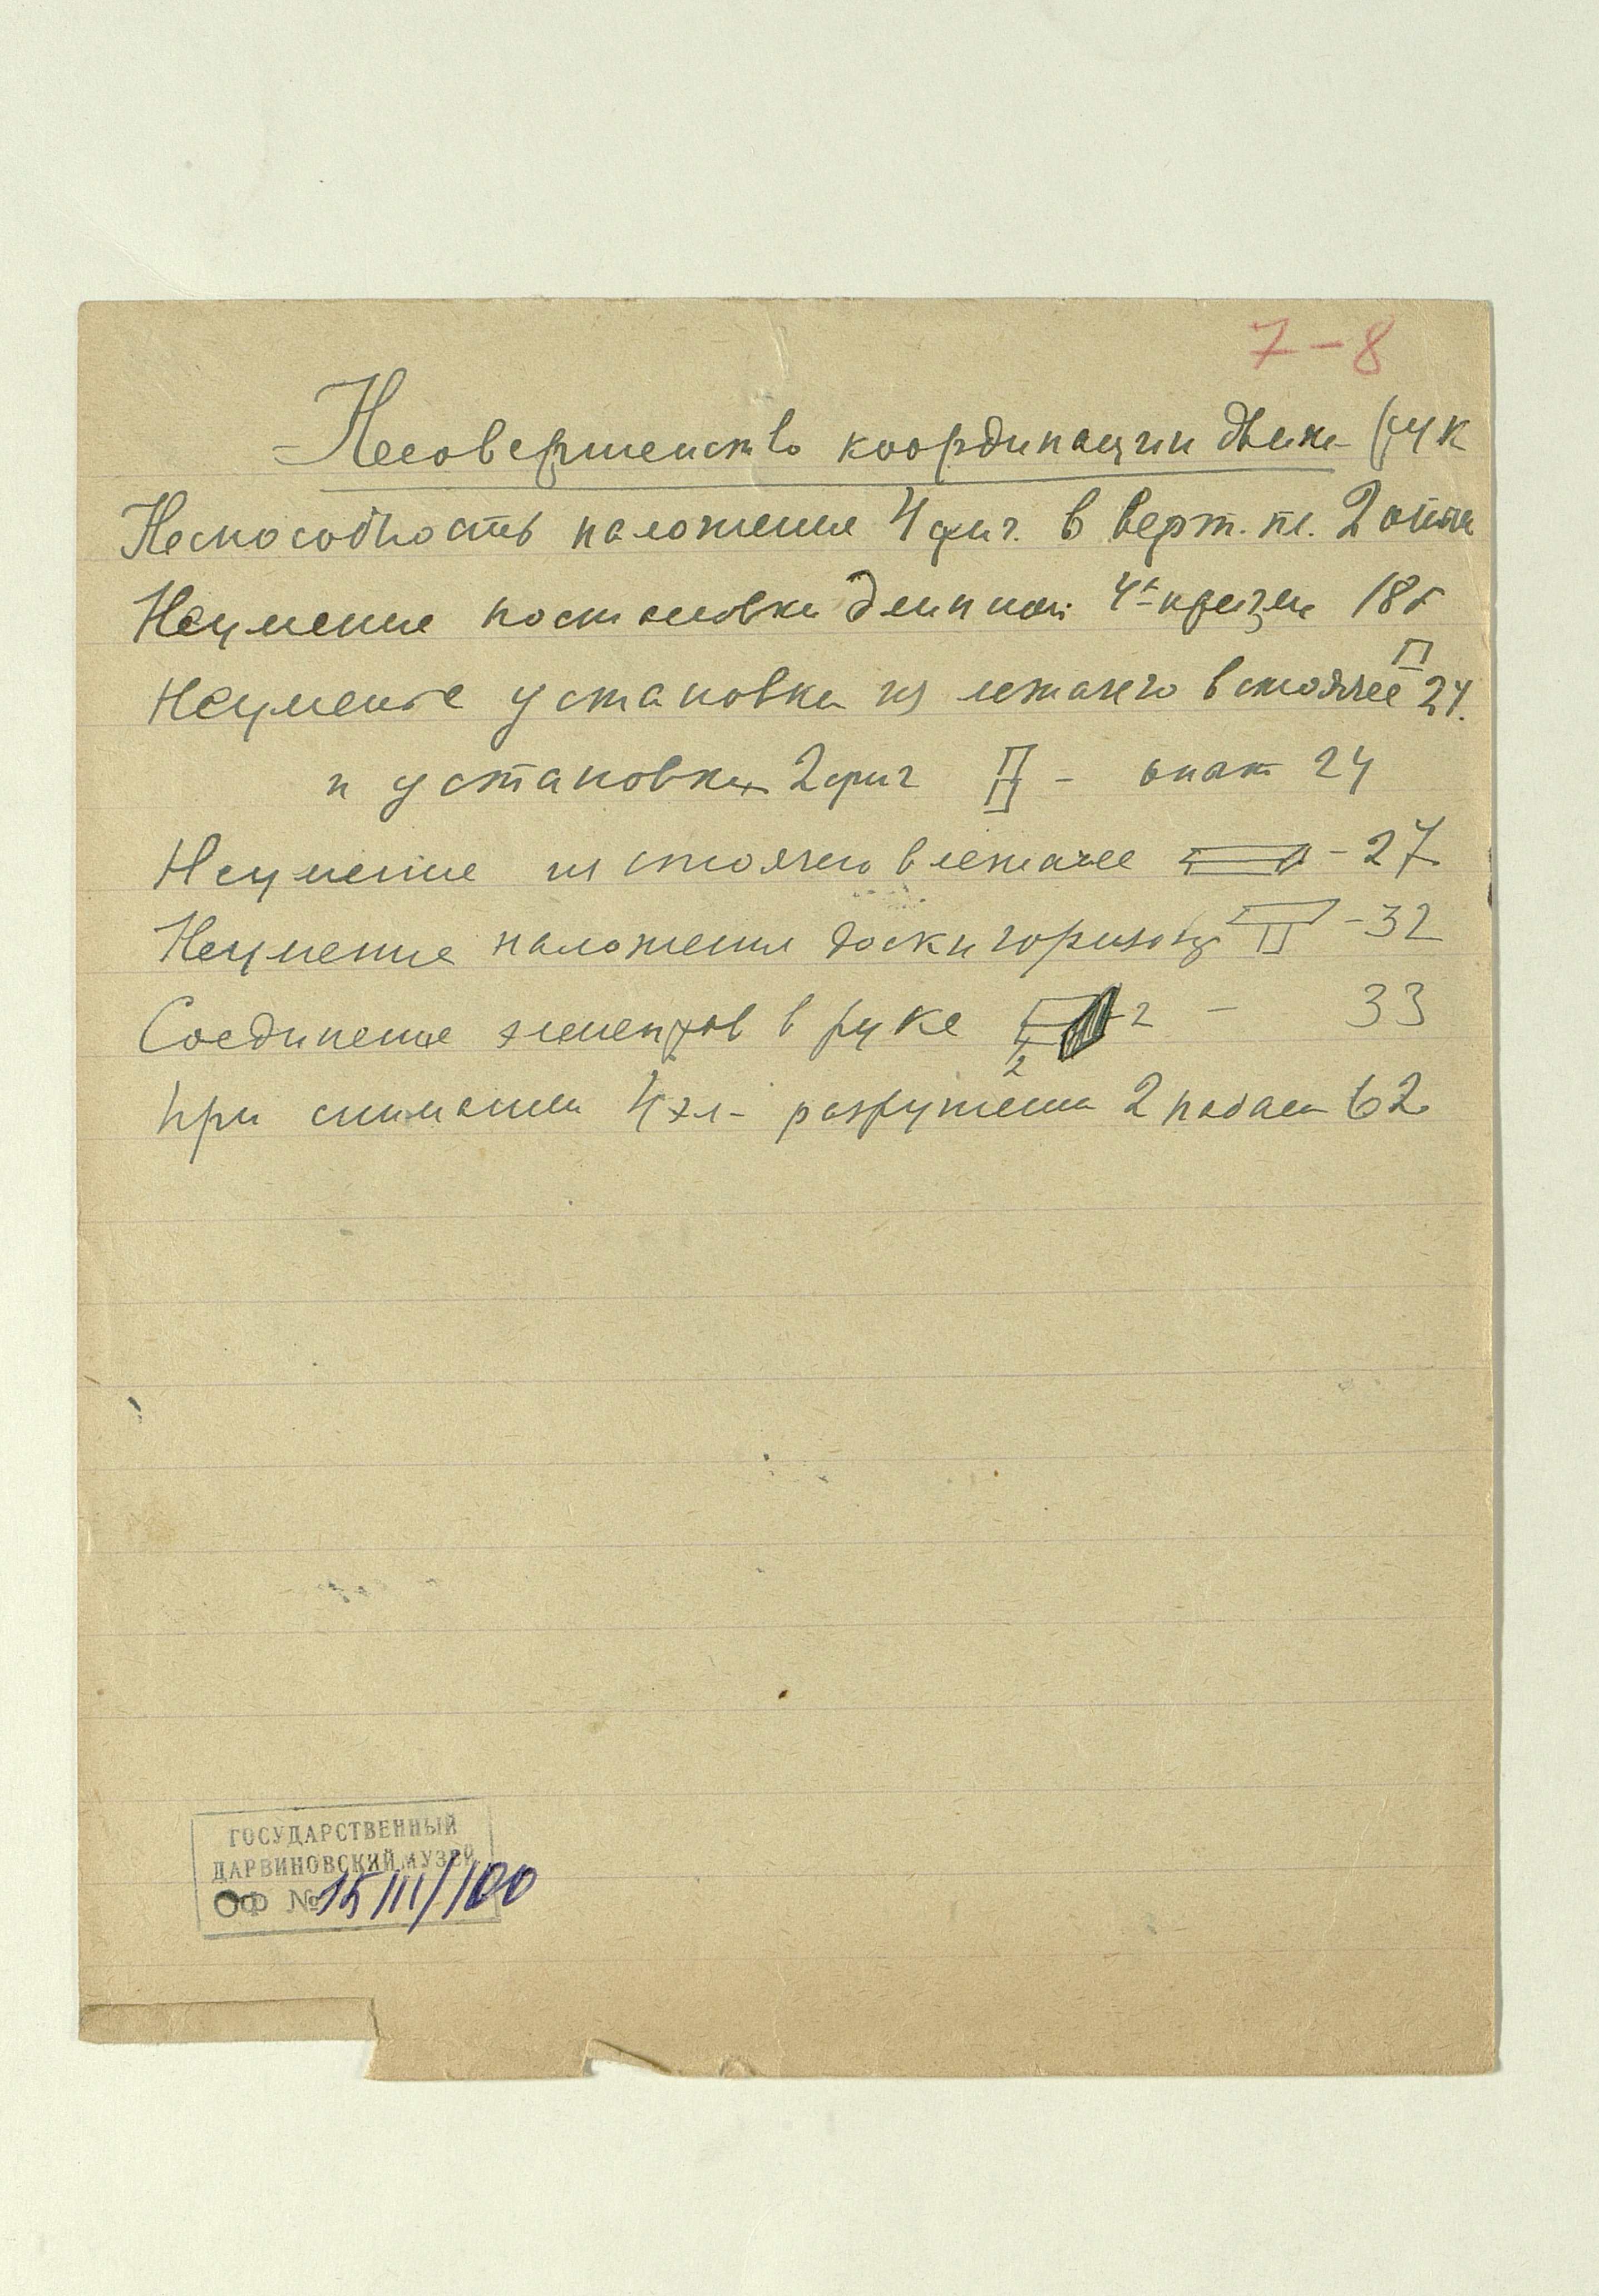 7-8
Несовершенство координации движ рук
Неспособность наложения 4 фиг. в верт. пл. 2 опыта
Неумение постановки длинной 4х призм 18
Неумение установки из лежачего в стоячее 24.
и установки 2 фиг - опыт 24
Неумение из стоячего в лежачее - 27
Неумение наложения доски горизонт - 32
Соединение элементов в руке 2 2 - 33
При снимании 4 эл- разрушении 2 подает 62
ГОСУДАРСТВЕННЫЙ
ДАРВИНОВСКИЙ МУЗЕЙ
ОФ № 15111/100